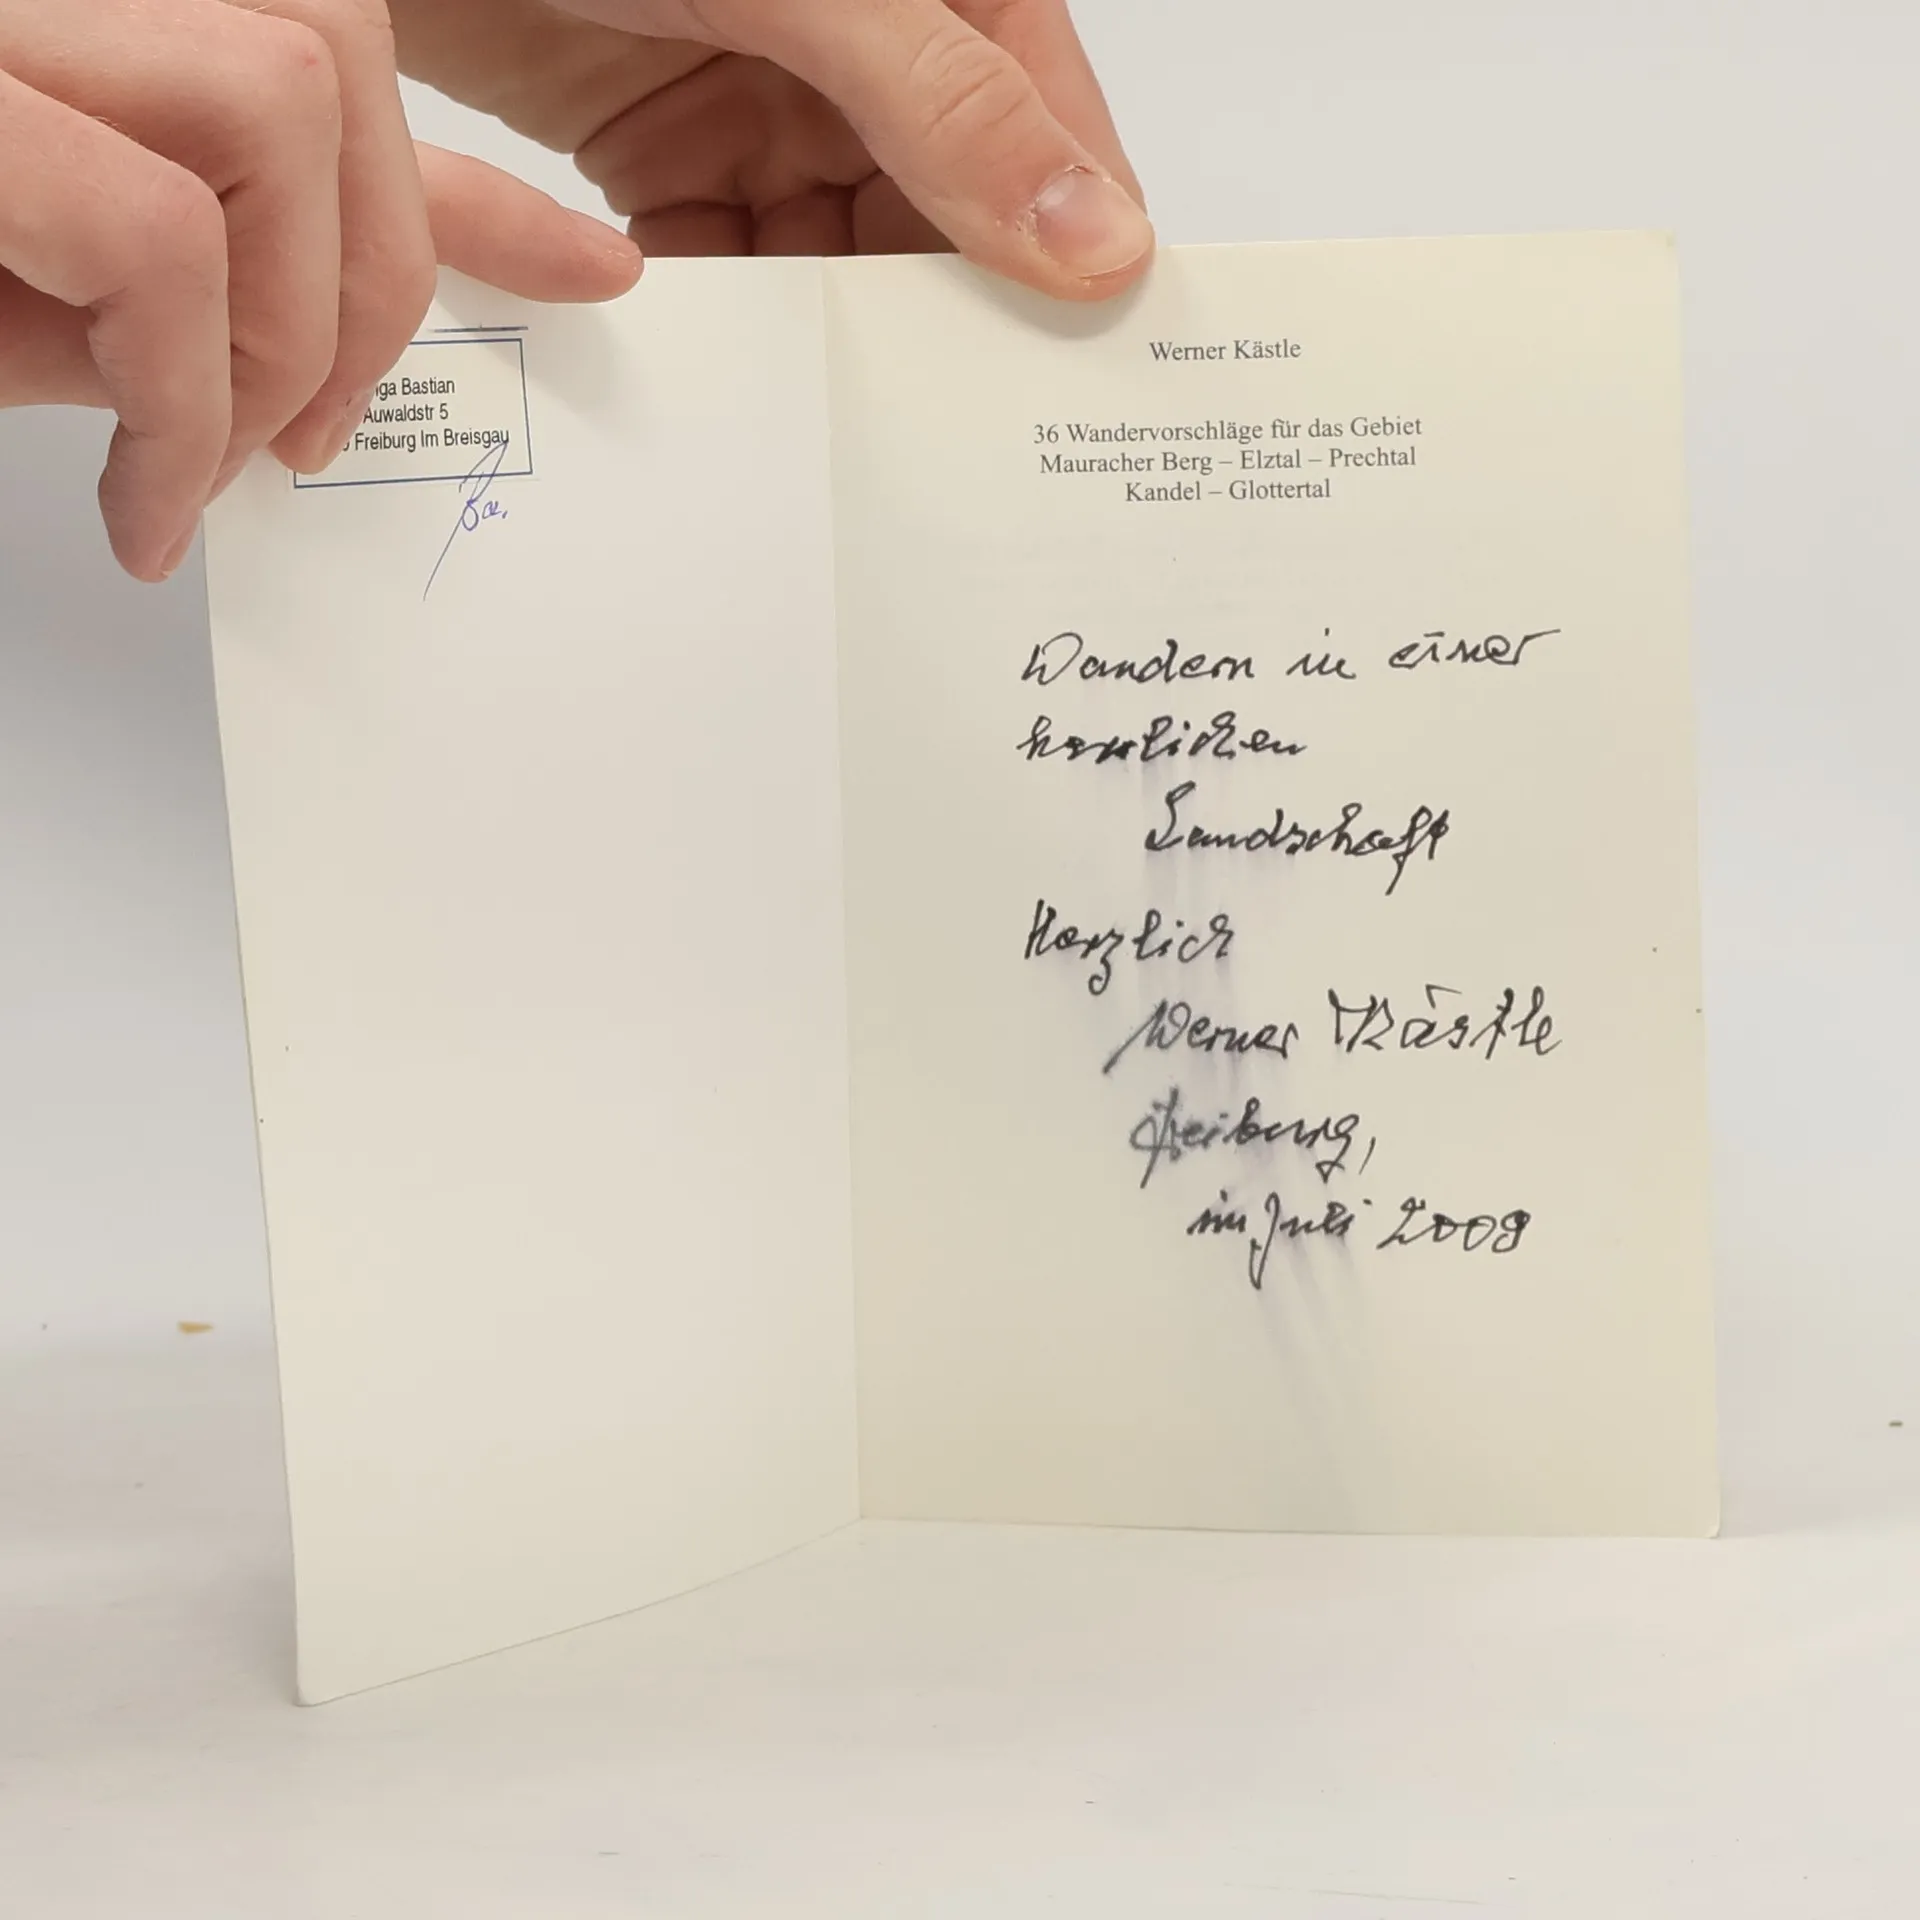 Bastian
Auwaldstr 5
Freiburg Im Breisgau
Werner Kästle
36 Wandervorschläge für das Gebiet
Mauracher Berg – Elztal – Prechtal
Kandel – Glottertal
Wandern in einer
herrlichen
Landschaft
Herzlich
Werner Kästle
Freiburg,
im Juli 2009